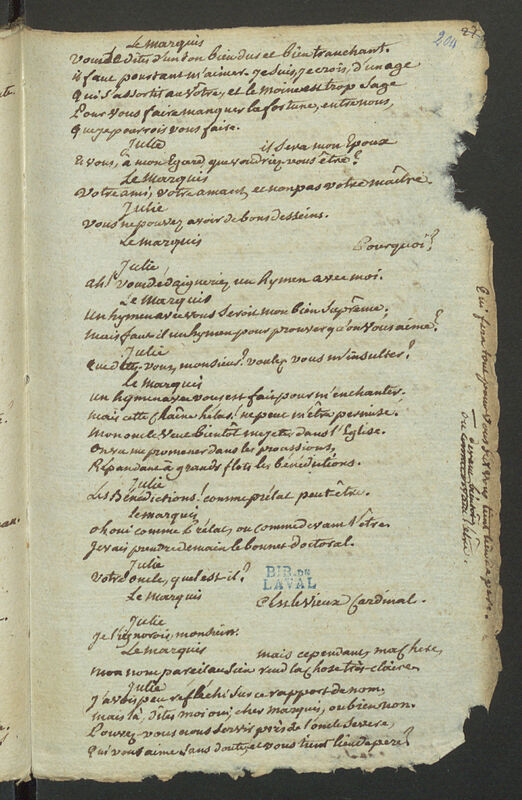 204
Le Marquis
Vous le dites d'un ton bien dur et bien tranchant.
il faut pourtant m'aimer. je suis, je crois, d'un age
Qui s'assortit au vôtre, et le moine est trop sage
Pour vous faire manquer la fortune, entre nous,
Que je pourrois vous faire.
Julie
il sera mon Epoux
Et vous, à mon Egard que voudriez-vous être?
Le Marquis
Votre ami, votre amant, et non pas votre maître
Julie
Vous ne pouvez avoir de bons desseins.
Le Marquis
Pourquoi?
Julie
Ah! Vous dédaigneriez un hymen avec moi.
Le Marquis
Un hymen avec vous seroit mon bien suprême,
mais faut il un hymen pour prouver qu'on vous aime?
Julie
Que dites-vous, monsieur? voulez vous m'insulter?
Le Marquis
un hymen avec vous est fait pour m'enchanter.
mais cette chaîne hélas! ne peut m'être permise.
Mon oncle veut bientôt me jeter dans l'Eglise.
On va me promener dans les processions,
Répandant à grands flots les bénédictions.
Julie
Les Bénédictions! comme prélat peut être.
le marquis
oh oui comme Prélat, ou comme devant l'être.
Je vais prendre demain le bonnet doctoral.
Julie
Votre oncle, quel est-il?
BIB. DE
LAVAL
Le Marquis
C'est le vieux Cardinal.
Julie
Je l'ignorois, monsieur.
Le Marquis
mais cependant, ma chere,
mon nom pareil au sien rend la chose très-claire.
Julie
J'avois peu réfléchi sur ce rapport de nom.
mais là, dites moi oui, cher marquis, ou bien non.
Pouvez-vous nous servir près de l'oncle severe,
Qui vous aime sans doute, et vous tient lieu de pere?
Qui fera tout pour vous vous tient lieu de pere.
devant bientôt
ou comme devant l'être.